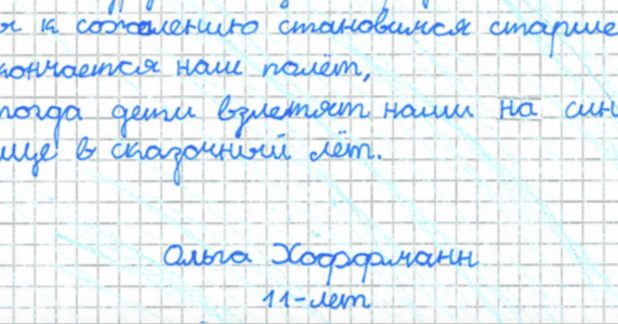 к сожалению становимся старше
кончается наш полёт,
тогда дети взлетят наши на син
ице в сказочный лёт.
Ольга Хоффманн
11-лет